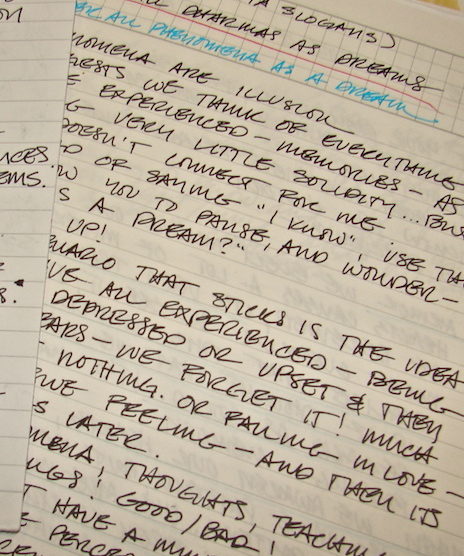 ON
NCES.
EMS.
S.
A SLOGANS)
LL DHARMAS AS DREAMS
ALL PHENOMENA AS A DREAM
NOMENA ARE ILLUSION
ESTS WE THINK OF EVERYTHING
E EXPERIENCED - MEMORIES - AS
G VERY LITTLE SOLIDITY... BUT
DOESN'T CONNECT FOR ME
D OF SAYING "I KNOW", USE TH
W YOU TO PAUSE, AND WONDER -
S A DREAM?"
UP!
NARIO THAT STICKS IS THE IDEA
VE ALL EXPERIENCED - BEING
DEPRESSED OR UPSET & THEN
EARS - WE FORGET IT! MUCH
NOTHING. OR FALLING IN LOVE -
WE FEELING - AND THEN ITS
S LATER.
MENA, THOUGHTS, TEACHIN
NGS! GOOD/BAD!
T HAVE A
E PERCE